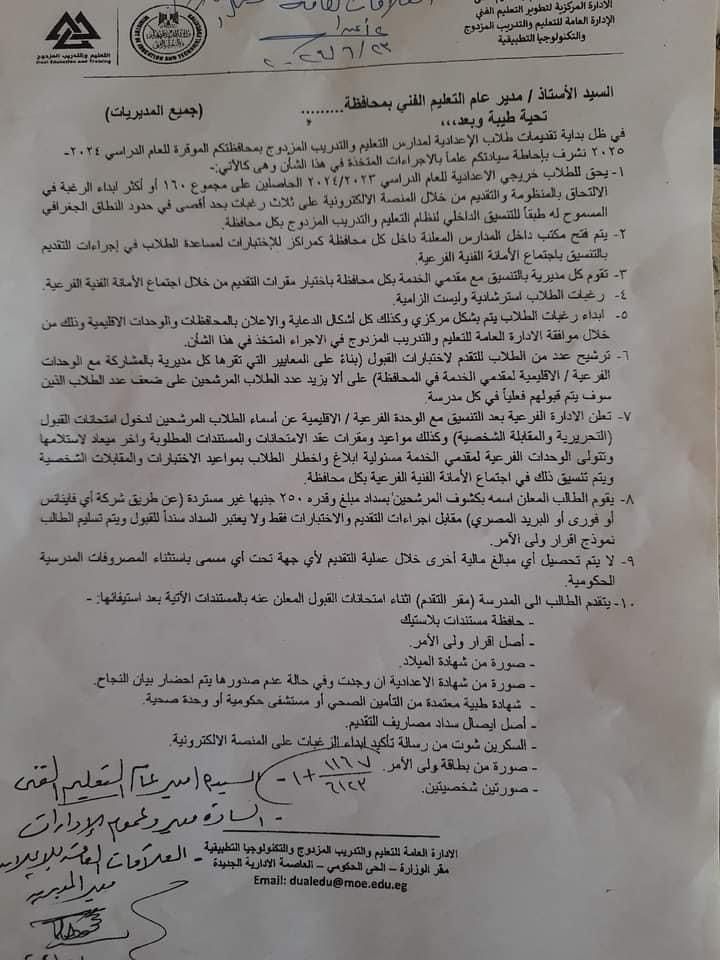 الادارة المركزية لتطوير التعليم الفني
الإدارة العامة للتعليم والتدريب المزدوج
والتكنولوجيا التطبيقية
التعليم والتدريب المزدوج
Dual Education and Training
السيد الأستاذ / مدير عام التعليم الفني بمحافظة.........
(جميع المديريات)
تحية طيبة وبعد،،،
في ظل بداية تقديمات طلاب الإعدادية لمدارس التعليم والتدريب المزدوج بمحافظتكم الموقرة للعام الدراسي ٢٠٢٤-
٢٠٢٥ نشرف بإحاطة سيادتكم علماً بالاجراءات المتخذة في هذا الشأن وهى كالآتي:-
١- يحق للطلاب خريجي الاعدادية للعام الدراسي ٢٠٢٤/٢٠٢٣ الحاصلين على مجموع ١٦٠ أو أكثر ابداء الرغبة في
الالتحاق بالمنظومة والتقديم من خلال المنصة الالكترونية على ثلاث رغبات بحد أقصى في حدود النطاق الجغرافي
المسموح له طبقاً للتنسيق الداخلي لنظام التعليم والتدريب المزدوج بكل محافظة.
٢- يتم فتح مكتب داخل المدارس المعلنة داخل كل محافظة كمراكز للإختبارات لمساعدة الطلاب في إجراءات التقديم
بالتنسيق باجتماع الأمانة الفنية الفرعية.
٣- تقوم كل مديرية بالتنسيق مع مقدمي الخدمة بكل محافظة باختيار مقرات التقديم من خلال اجتماع الأمانة الفنية الفرعية.
٤- رغبات الطلاب استرشادية وليست الزامية.
٥- ابداء رغبات الطلاب يتم بشكل مركزي وكذلك كل أشكال الدعاية والاعلان بالمحافظات والوحدات الاقليمية وذلك من
خلال موافقة الادارة العامة للتعليم والتدريب المزدوج في الاجراء المتخذ في هذا الشأن.
٦- ترشيح عدد من الطلاب للتقدم لاختبارات القبول (بناءً على المعايير التي تقرها كل مديرية بالمشاركة مع الوحدات
الفرعية / الاقليمية لمقدمي الخدمة في المحافظة) على ألا يزيد عدد الطلاب المرشحين على ضعف عدد الطلاب الذين
سوف يتم قبولهم فعلياً في كل مدرسة.
٧- تعلن الادارة الفرعية بعد التنسيق مع الوحدة الفرعية / الاقليمية عن أسماء الطلاب المرشحين لدخول امتحانات القبول
(التحريرية والمقابلة الشخصية) وكذلك مواعيد ومقرات عقد الامتحانات والمستندات المطلوبة واخر ميعاد لاستلامها
وتتولى الوحدات الفرعية لمقدمي الخدمة مسئولية ابلاغ واخطار الطلاب بمواعيد الاختبارات والمقابلات الشخصية
ويتم تنسيق ذلك في اجتماع الأمانة الفنية الفرعية بكل محافظة.
٨- يقوم الطالب المعلن اسمه بكشوف المرشحين بسداد مبلغ وقدره ٢٥٠ جنيها غير مستردة (عن طريق شركة أي فاينانس
أو فورى أو البريد المصري) مقابل اجراءات التقديم والاختبارات فقط ولا يعتبر السداد سنداً للقبول ويتم تسليم الطالب
نموذج اقرار ولى الأمر.
٩- لا يتم تحصيل أي مبالغ مالية أخرى خلال عملية التقديم لأي جهة تحت أي مسمى باستثناء المصروفات المدرسية
الحكومية.
١٠- يتقدم الطالب الى المدرسة (مقر التقدم) اثناء امتحانات القبول المعلن عنه بالمستندات الآتية بعد استيفائها: -
- حافظة مستندات بلاستيك
- أصل اقرار ولى الأمر.
- صورة من شهادة الميلاد.
- صورة من شهادة الاعدادية ان وجدت وفي حالة عدم صدورها يتم احضار بيان النجاح.
- شهادة طبية معتمدة من التأمين الصحي أو مستشفى حكومية أو وحدة صحية.
- أصل ايصال سداد مصاريف التقديم.
- السكرين شوت من رسالة تأكيد ابداء الرغبات على المنصة الالكترونية.
- صورة من بطاقة ولى الأمر.
- صورتين شخصيتين.
السيد / مدير عام التعليم الفنى
- السادة مديرو عموم الإدارات
- العلاقات العامة للإعلان
مدير المديرية
الادارة العامة للتعليم والتدريب المزدوج والتكنولوجيا التطبيقية
مقر الوزارة – الحى الحكومي – العاصمة الادارية الجديدة
Email: dualedu@moe.edu.eg